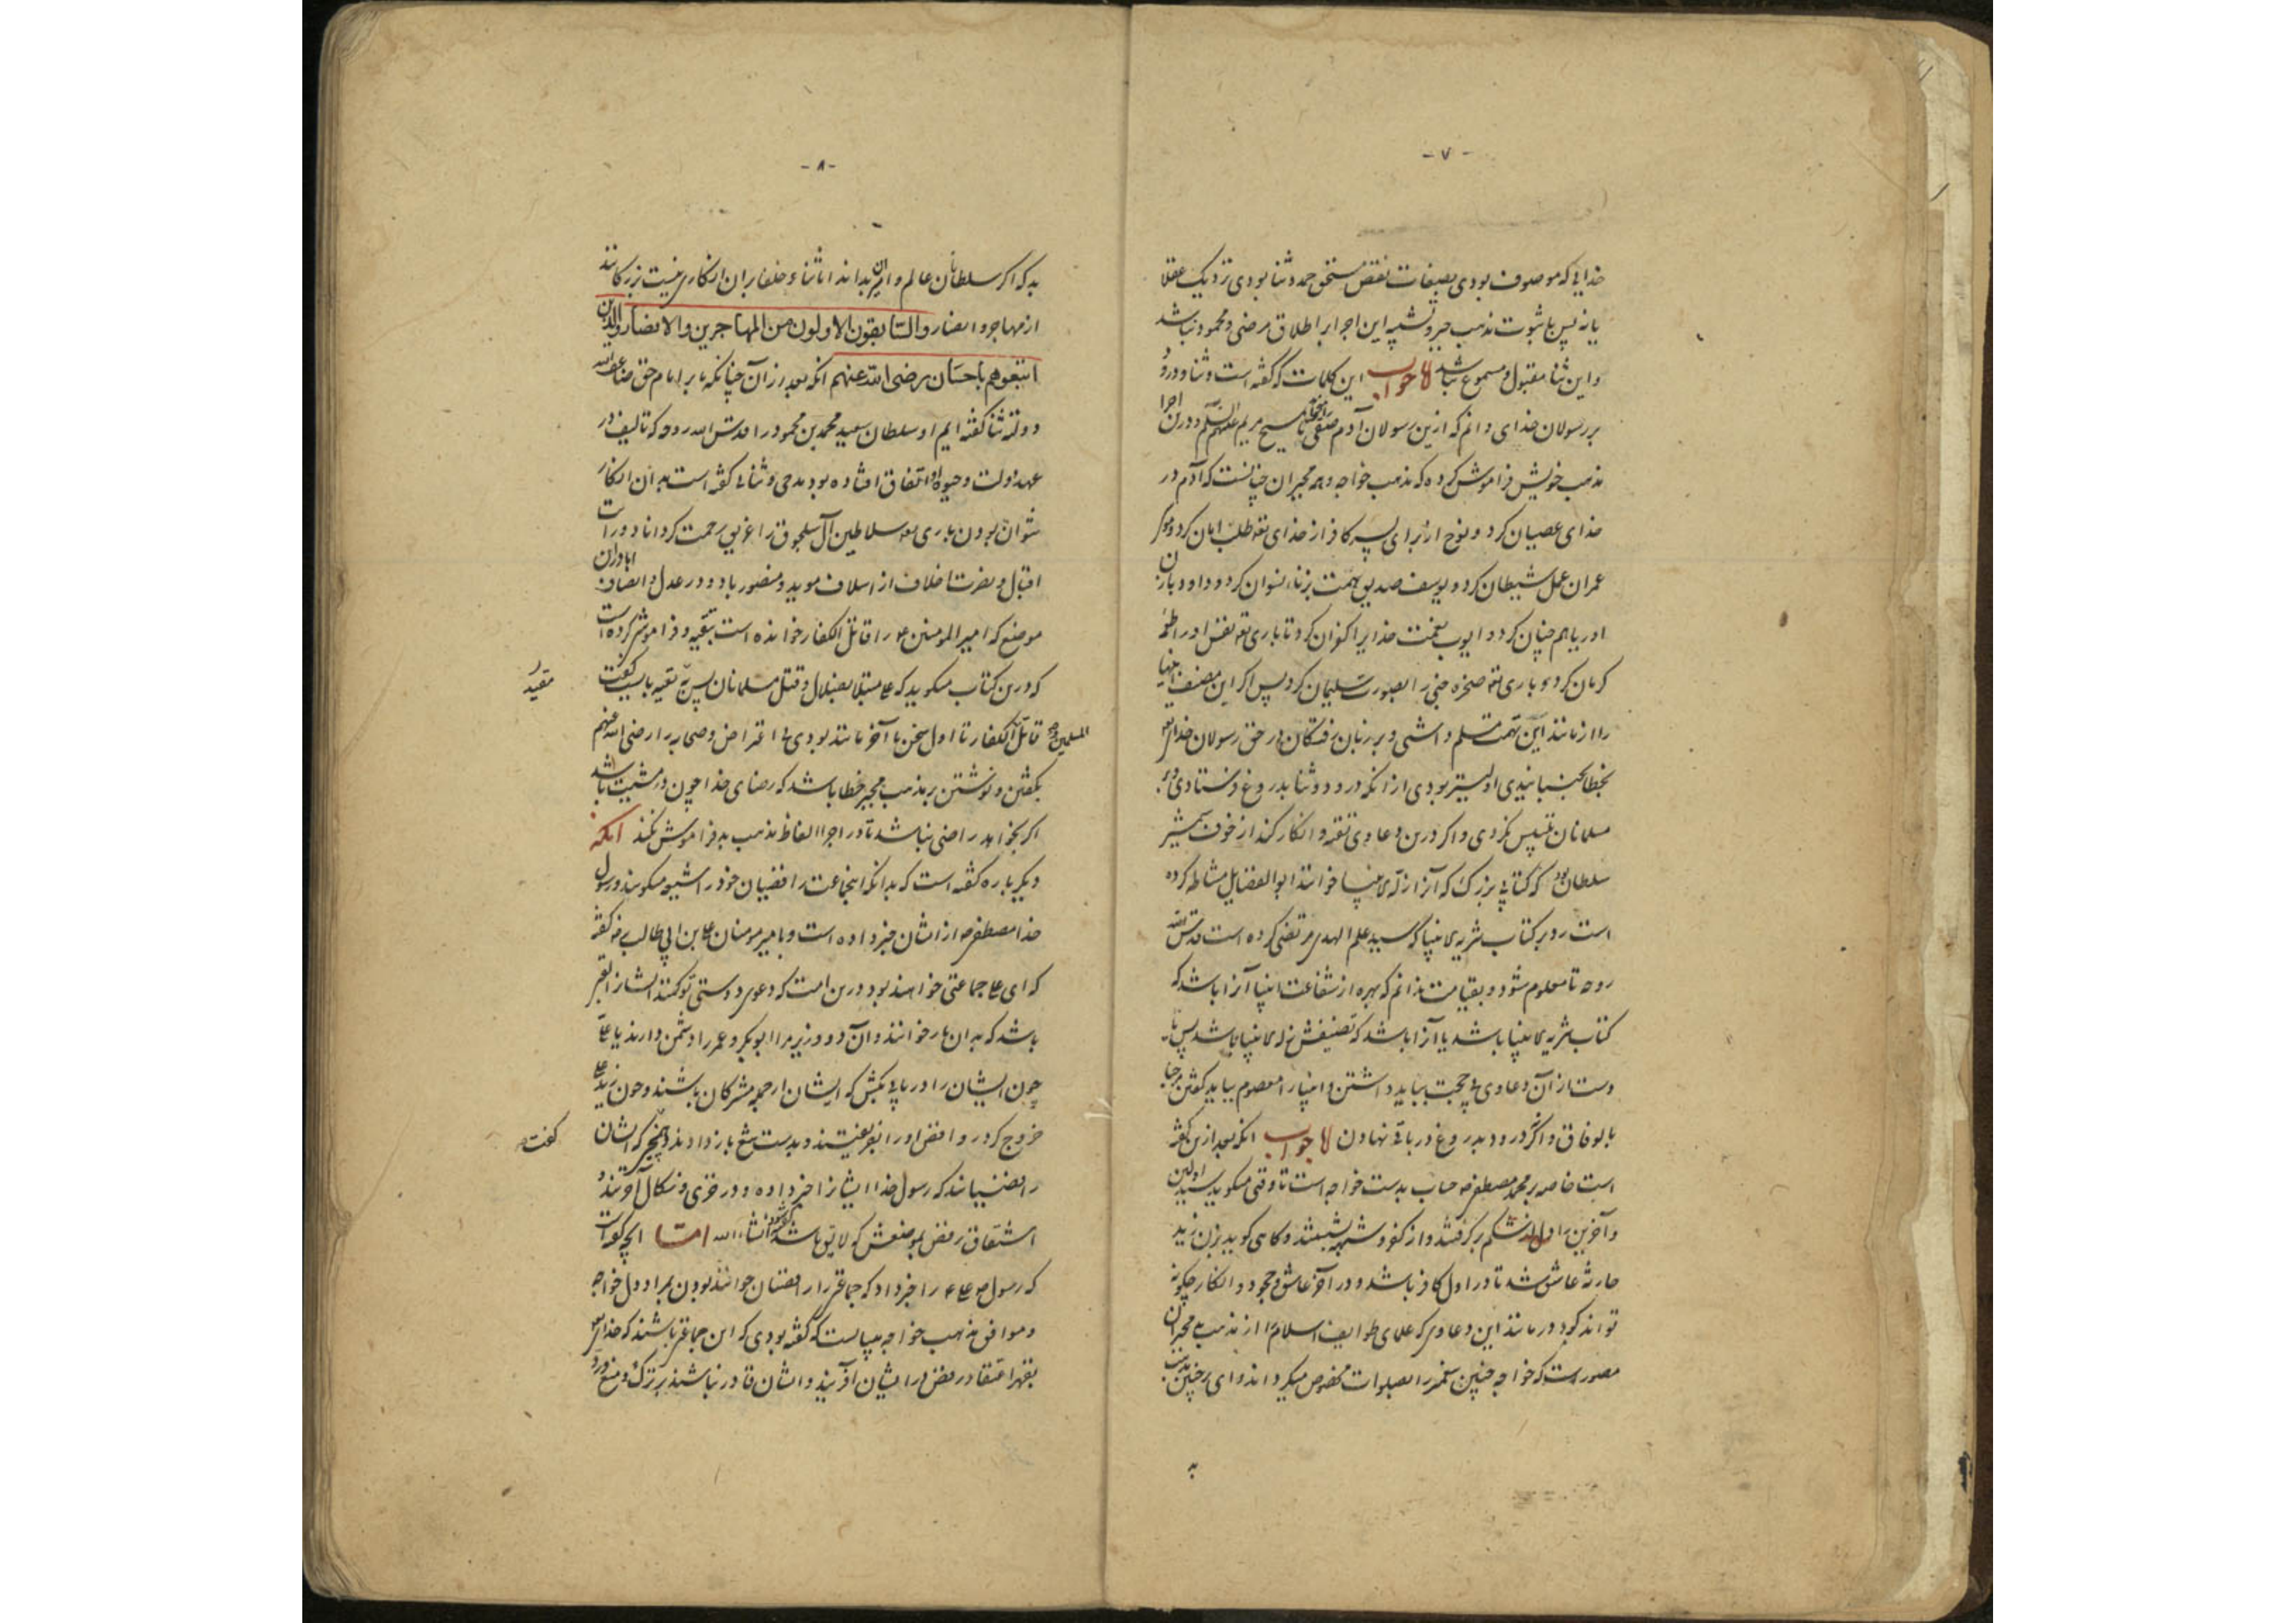 - ۷ -
خدایی که موصوف بودی بصفات نقص مستحق حمد و ثنا بودی نزدیک عقلا
یا نه پس با ثبوت مذهب جبر و تشبیه این اجرا بر اطلاق مرضی و محمود نباشد
و این ثنا مقبول و مسموع نباشد لا جواب این کلمات که گفته است و ثنا و درود
بر رسولان خدای دانم که ازین رسولان آدم صفی تا مسیح مریم علیهم السلم و درین اجرا
مذهب خویش فراموش کرده که مذهب خواجه و همه مجبران چنانست که آدم در
خدای عصیان کرد و نوح از برای پسر کافر از خدای تعه طلب امان کرد و موسی
عمران عمل شیطان کرد و یوسف صدیق همت بزنا نسوان کرد و داود با زن
اوریا هم چنان کرد و ایوب نعمت خدایرا کفران کرد تا باری تعه نفس او را طعمه
کرمان کرد و باری تعه صخره جنی را بصورت سلیمان کرد پس اگر این مصنف انبیا
را از مانند این تهمت مسلم داشتی و بر زبان رفتگان در حق رسولان خدای تعه
بخطا نجنبانیدی اولیتر بودی از آنکه درود و ثنا بدروغ فرستادی و بر
مسلمانان تلبیس نکردی و اگر درین دعاوی تقیه و انکار کند از خوف شمشیر
سلطان بود که کتابی بزرگ که آنرا زلة الانبیا خوانند ابو الفضایل مشاط کرده
است رد بر کتاب تنزیه الانبیا که سید علم الهدی مرتضی کرده است قدس الله
روحه تا معلوم شود و بقیامت بدانم که بهره از شفاعت انبیا آنرا باشد که
کتاب تنزیه الانبیا باشد یا آنرا باشد که تصنیفش زلة الانبیا باشد پس یا
دست از آن دعاوی بی حجت بباید داشتن و انبیا را معصوم بباید گفتن برجا
بالوفاق و اگر درود بدروغ در باقی نهادن لا جواب آنکه بعد ازین گفته
است خاصه بر محمد مصطفی صه حساب بدست خواجه است تا وقتی میگوید سید اولین
و آخرین را دل از شکم بر گرفتند و از کفر و شبهه بشستند و گاهی گوید بزن زید
حارثه عاشق شد تا در اول کافر باشد و در آخر عاشق و جحود و انکار چگونه
تواند کرد در مانند این دعاوی که علمای طوایف اسلام را از مذهب مجبران
مصور است که خواجه چنین پیغمبر را بصلوات مخصوص میگرداند و ای بر چنین مذهب
به
- ۸ -
بد که اگر سلطانان عالم و امیران بدانند اما ثناء خلفا بر ان انکاری نیست بزرگانند
از مهاجر و انصار والسابقون الاولون من المهاجرین والانصار والذین
اتبعوهم باحسان رضی الله عنهم آنکه بعد از آن چنانکه ما بر امام حق
دولته ثنا گفته ایم او سلطان سعید محمد بن محمود را قدس الله روحه که تالیف در
عهد دولت و حیوة او اتفاق افتاده بود مدحی و ثنایی گفته است بدان انکار
نتوان بودن باری تعه سلاطین آل سلجوق را غریق رحمت گرداناد و رایات
اقبال و نصرت اخلاف از اسلاف موید و منصور باد و در عدل و انصاف اباد وران
موضع که امیر المومنین ع را قاتل الکفار خوانده است بتقیه و فراموش کرده است
که درین کتاب میگوید که علی مبتلا بضلال و قتل مسلمانان پس بی تقیه بایست گفت
مقید
المسلمین و
قاتل الکفار تا اول سخن با آخر مانند بودی بی اعتراض و صحابه را رضی الله عنهم
بگفتن و نوشتن بر مذهب مجبر خطا باشد که رضای خدا چون در مشیت باشد
اگر بخواهد راضی نباشد تا در اجرا الفاظ مذهب بد فراموش نکند آنکه
دیگر باره گفته است که بدانکه این جماعت رافضیان خود را شیعه میگویند و رسول
خدا مصطفی صه از ایشان خبر داده است و بامیر مومنان علی بن ابی طالب ع گفته
که ای علی جماعتی خواهند بود درین امت که دعوی دوستی تو کنند ایشانرا لقبی
باشد که بدان باز خوانند و آن دو وزیر مرا ابوبکر و عمر را دشمن دارند یا علی
چون ایشان را دریابی بکش که ایشان از جمله مشرکان باشند و چون زید علی
خروج کرد روافض او را بفریفتند و بدست تیغ باز دادند و همچنین که ایشان
گفت
رافضیانند که رسول خدا ایشانرا خبر داده و در خزی و نکال آخرتند و
اشتقاق رفض بموضعش که لایق باشد گفته شود انشاء الله اما آنچه گفته است
که رسول ص علی ع را خبر داد که جماعتی را رافضیان خوانند بودن بمراد دل خواجه
و موافق مذهب خواجه میبایست که گفته بودی که این جماعتی باشند که خدای تعه
بقهر اعتقاد رفض در ایشان آفریند و ایشان قادر نباشند بر ترک و منع و رد